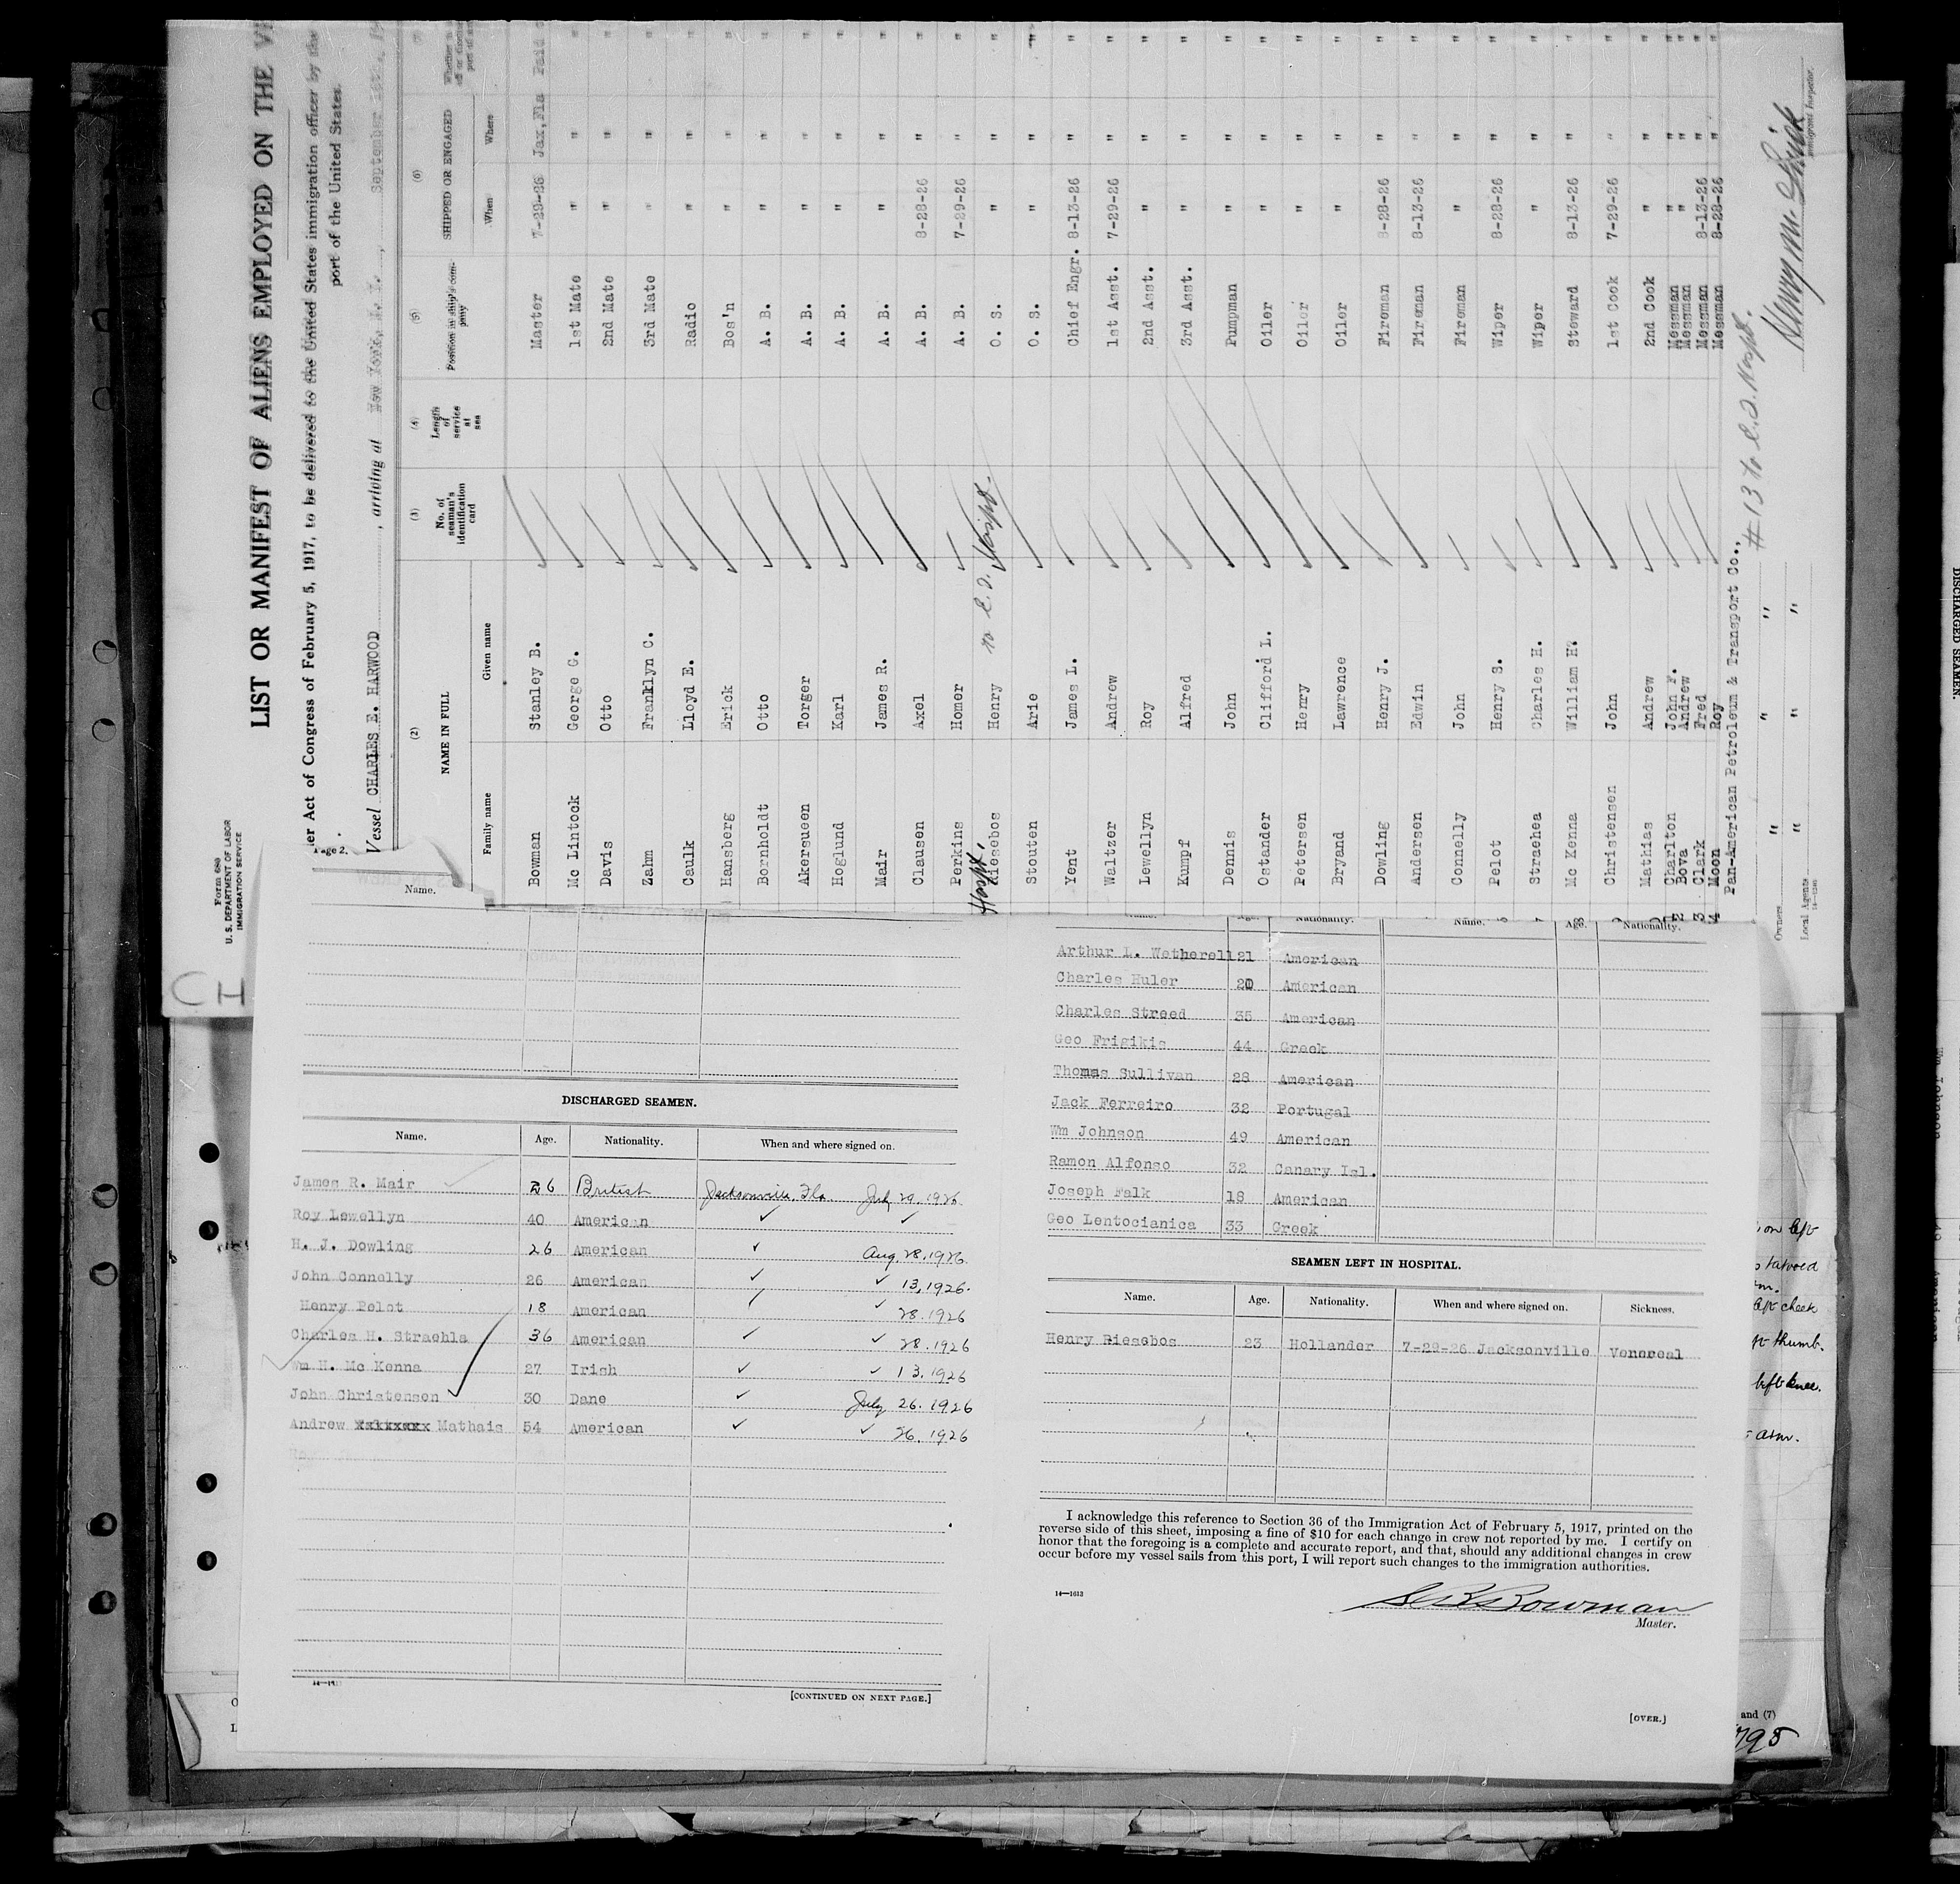 Form 680
U. S. DEPARTMENT OF LABOR
IMMIGRATION SERVICE
LIST OR MANIFEST OF ALIENS EMPLOYED ON THE
er Act of Congress of February 5, 1917, to be delivered to the United States immigration officer by the
port of the United States.
Page 2.
Vessel CHARLES E. HARWOOD , arriving at New York, N.Y. , September
(2) (3) (4) (5) (6)
NAME IN FULL No. of seaman's identification card Length of service at sea Position in ship's company SHIPPED OR ENGAGED
Family name Given name When Where
Bowman Stanley B. Master 7-29-26 Jax, Fla Paid
Mc Lintock George G. 1st Mate " " "
Davis Otto 2nd Mate " " "
Zahm Franklyn C. 3rd Mate " " "
Caulk Lloyd E. Radio " " "
Hansberg Erick Bos'n " " "
Bornholdt Otto A. B. " " "
Akersueen Torger A. B. " " "
Hoglund Karl A. B. " " "
Mair James R. A. B. " " "
Clausen Axel A. B. 8-28-26 " "
Perkins Homer A. B. 7-29-26 " "
Hospt. Riesebos Henry to E.I. Hospt. O. S. " " "
Stouten Arie O. S. " "
Yent James L. Chief Engr. 8-13-26 " "
Waltzer Andrew 1st Asst. 7-29-26 " "
Lewellyn Roy 2nd Asst. " " "
Kumpf Alfred 3rd Asst. " " "
Dennis John Pumpman " " "
Ostander Clifford L. Oiler " " "
Petersen Henry Oiler " " "
Bryand Lawrence Oiler " " "
Dowling Henry J. Fireman 8-28-26 " "
Andersen Edwin Fireman 8-13-26 " "
Connelly John Fireman " " "
Pelot Henry S. Wiper 8-28-26 " "
Straehea Charles H. Wiper " " "
Mc Kenna William H. Steward 8-13-26 " "
Christensen John 1st Cook 7-29-26 " "
Mathias Andrew 2nd Cook " " "
Charlton John F. Messman " " "
Bova Andrew Messman " " "
Clark Fred Messman 8-13-26 " "
Moon Roy Messman 8-28-26 " "
Pan-American Petroleum & Transport Co.,
# 13 to E.I. Hospt.
Owners " " "
Local Agents " " "
Immigrant Inspector.
CH
Name.
DISCHARGED SEAMEN.
Name. Age. Nationality. When and where signed on.
James R. Mair 26 British Jacksonville, Fla. July 29, 1926
Roy Lewellyn 40 American
H. J. Dowling 26 American Aug. 28, 1926.
John Connelly 26 American 13, 1926.
Henry Pelot 18 American 28. 1926
Charles H. Straehla 36 American 28. 1926
Wm H. Mc Kenna 27 Irish 13. 1926
John Christensen 30 Dane July 26. 1926
Andrew Mathais 54 American 26. 1926
[CONTINUED ON NEXT PAGE.]
Name. Age. Nationality. Name. Age. Nationality.
Arthur L. Wetherell 21 American
Charles Huler 20 American
Charles Streed 35 American
Geo Frigikis 44 Greek
Thomas Sullivan 28 American
Jack Ferreiro 32 Portugal
Wm Johnson 49 American
Ramon Alfonso 32 Canary Isl.
Joseph Falk 18 American
Geo Lentocianica 33 Greek
SEAMEN LEFT IN HOSPITAL.
Name. Age. Nationality. When and where signed on. Sickness.
Henry Riesebos 23 Hollander 7-29-26 Jacksonville Venereal
I acknowledge this reference to Section 36 of the Immigration Act of February 5, 1917, printed on the
reverse side of this sheet, imposing a fine of $10 for each change in crew not reported by me. I certify on
honor that the foregoing is a complete and accurate report, and that, should any additional changes in crew
occur before my vessel sails from this port, I will report such changes to the immigration authorities.
14—1613
S B Bowman
Master.
[OVER.]
on left
tatooed
cheek
thumb.
left knee.
arm.
and (7)
DISCHARGED SEAMEN.